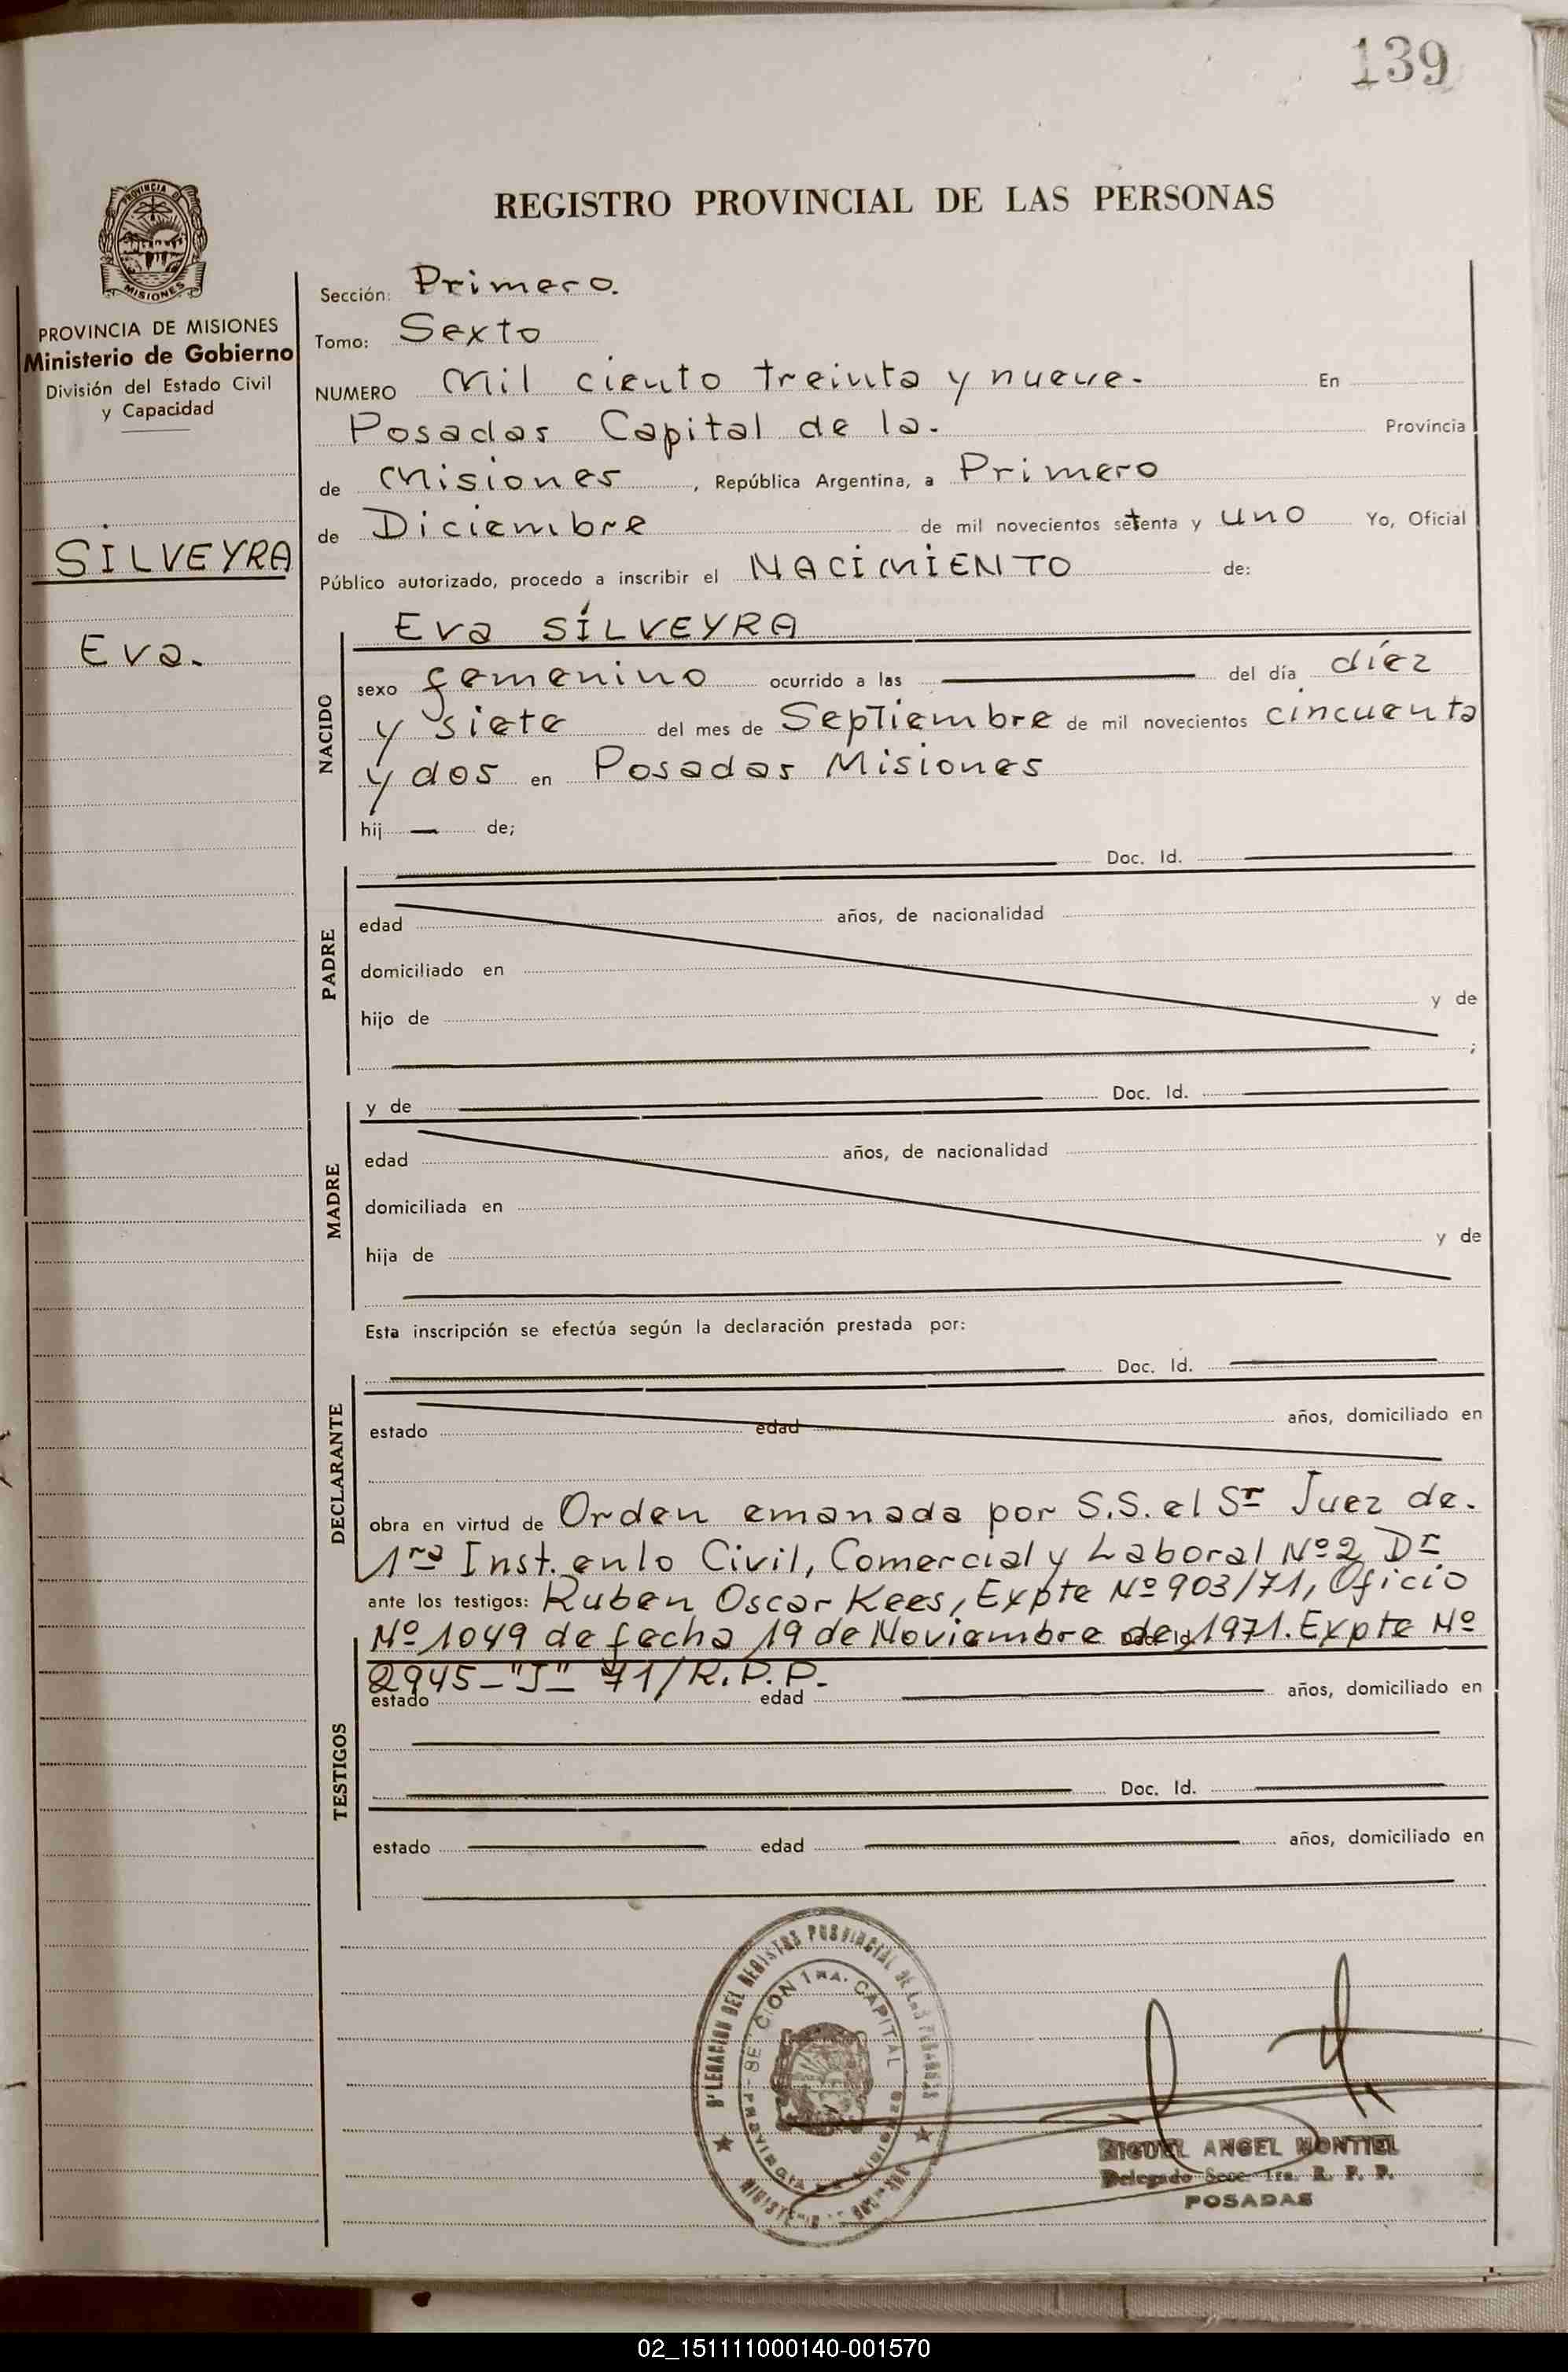 139
PROVINCIA DE
MISIONES
REGISTRO PROVINCIAL DE LAS PERSONAS
PROVINCIA DE MISIONES
Ministerio de Gobierno
División del Estado Civil
y Capacidad
SILVEYRA
Eva.
Sección: Primero.
Tomo: Sexto
NUMERO Mil ciento treinta y nueve. En
Posadas Capital de la. Provincia
de Misiones, República Argentina, a Primero
de Diciembre de mil novecientos setenta y uno Yo, Oficial
Público autorizado, procedo a inscribir el NACIMIENTO de:
NACIDO
Eva SILVEYRA
sexo femenino ocurrido a las del día diez
y siete del mes de Septiembre de mil novecientos cincuenta
y dos en Posadas Misiones
hij de;
PADRE
Doc. Id.
edad años, de nacionalidad
domiciliado en
hijo de y de
;
MADRE
y de Doc. Id.
edad años, de nacionalidad
domiciliada en
hija de y de
Esta inscripción se efectúa según la declaración prestada por:
DECLARANTE
Doc. Id.
estado edad años, domiciliado en
obra en virtud de Orden emanada por S.S. el Sr Juez de.
1ra Inst. en lo Civil, Comercial y Laboral Nº 2 Dr.
ante los testigos: Ruben Oscar Kees, Expte Nº 903/71, Oficio
Nº 1049 de fecha 19 de Noviembre de 1971. Expte Nº
2945-"J"-71/R.P.P.
TESTIGOS
estado edad años, domiciliado en
Doc. Id.
estado edad años, domiciliado en
DELEGACION DEL REGISTRO PROVINCIAL DE LAS PERSONAS
SECCION 1RA. CAPITAL
PROVINCIA DE MISIONES
MIGUEL ANGEL MONTIEL
Delegado Secc. 1ra. R. P. P.
POSADAS
02_151111000140-001570